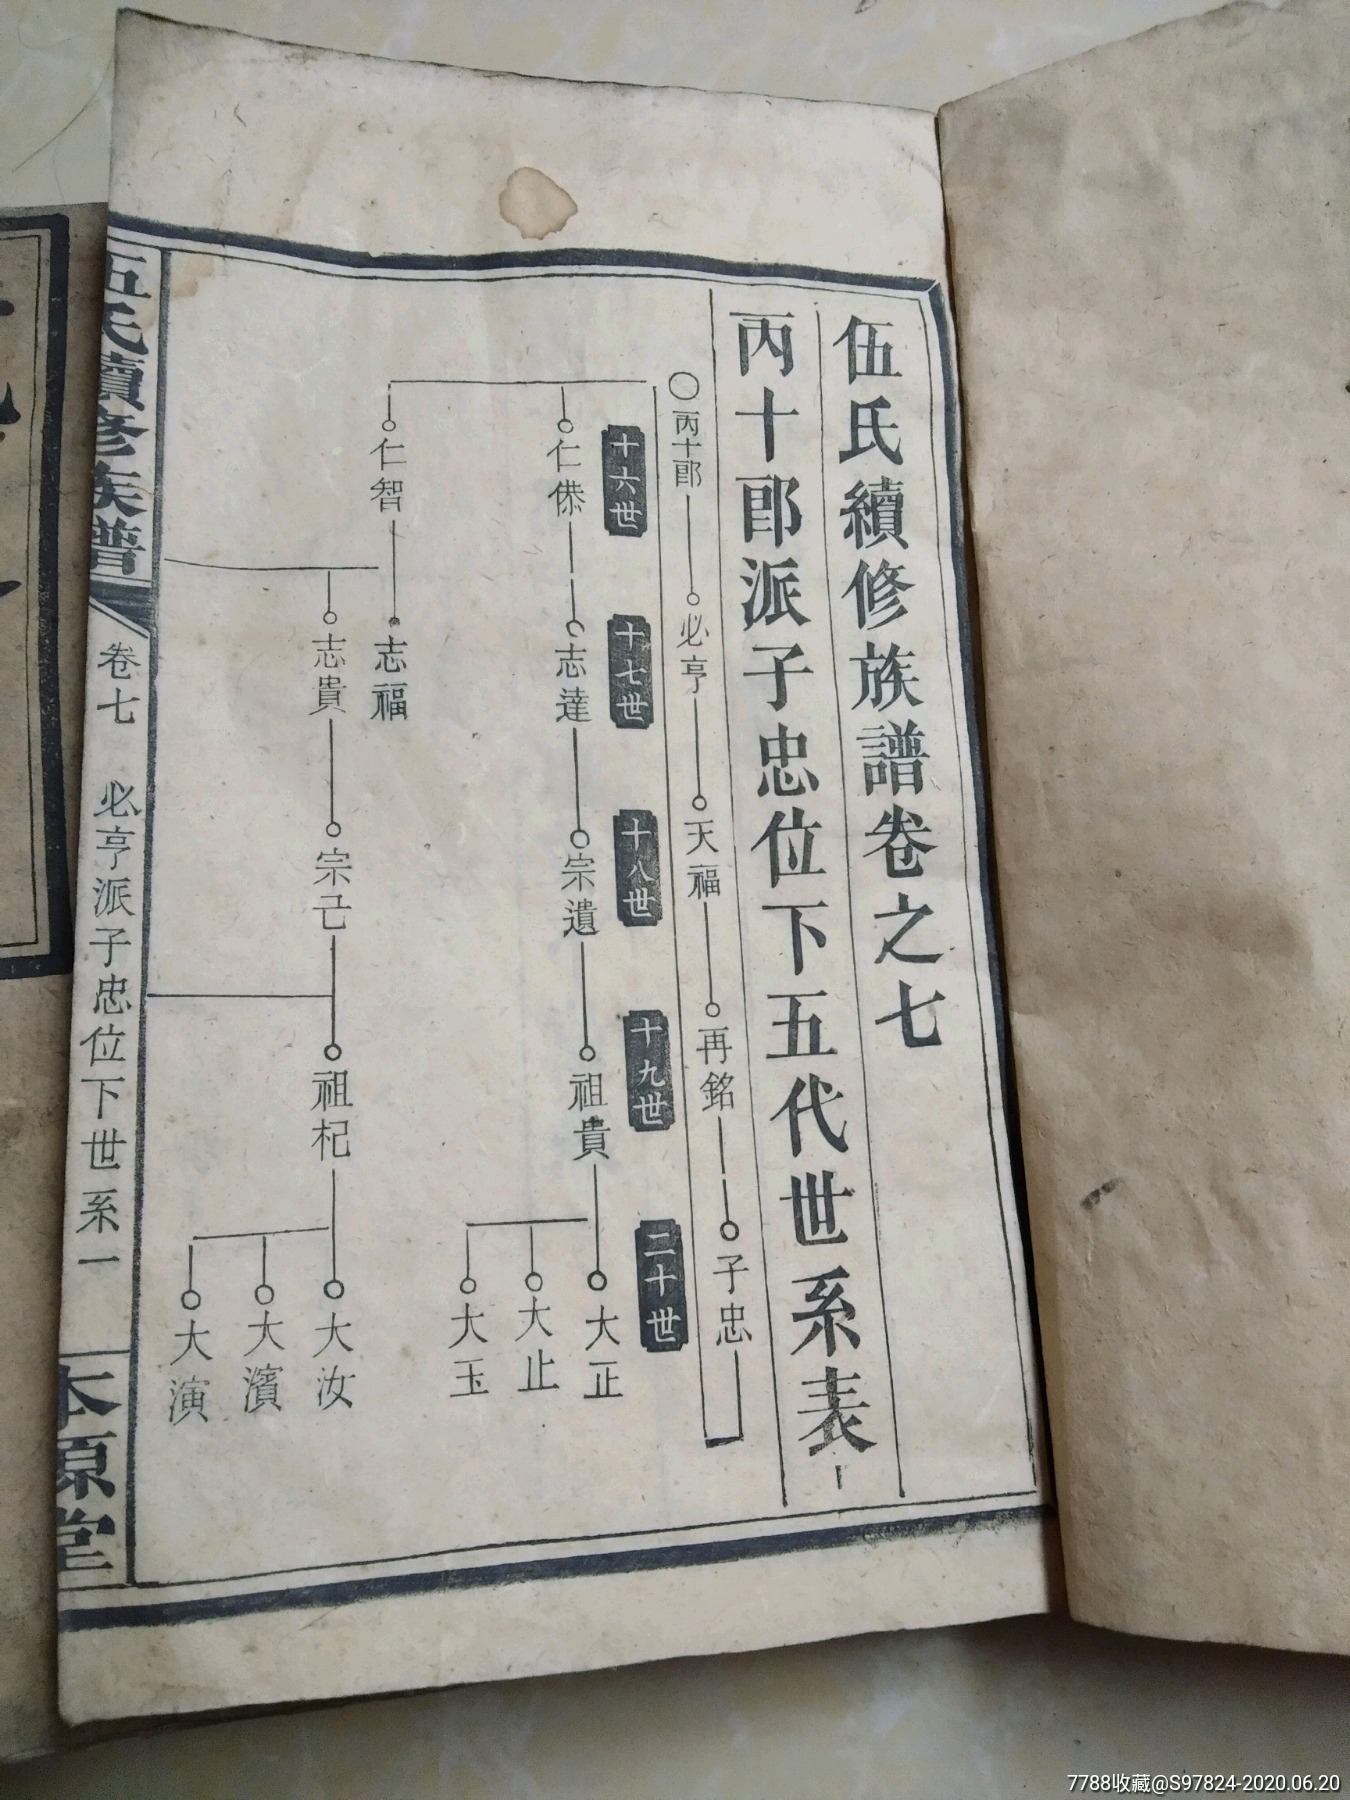 伍氏續修族譜卷之七
丙十郎派子忠位下五代世系表
丙十郎 必亨 天福 再銘 子忠
十六世 十七世 十八世 十九世 二十世
仁恭 志達 宗遺 祖貴 大正
大止
大玉
仁智 志福
志貴 宗己 祖杞 大汝
大濱
大演
伍氏續修族譜
卷七 必亨派子忠位下世系一
本原堂
7788收藏@S97824-2020.06.20